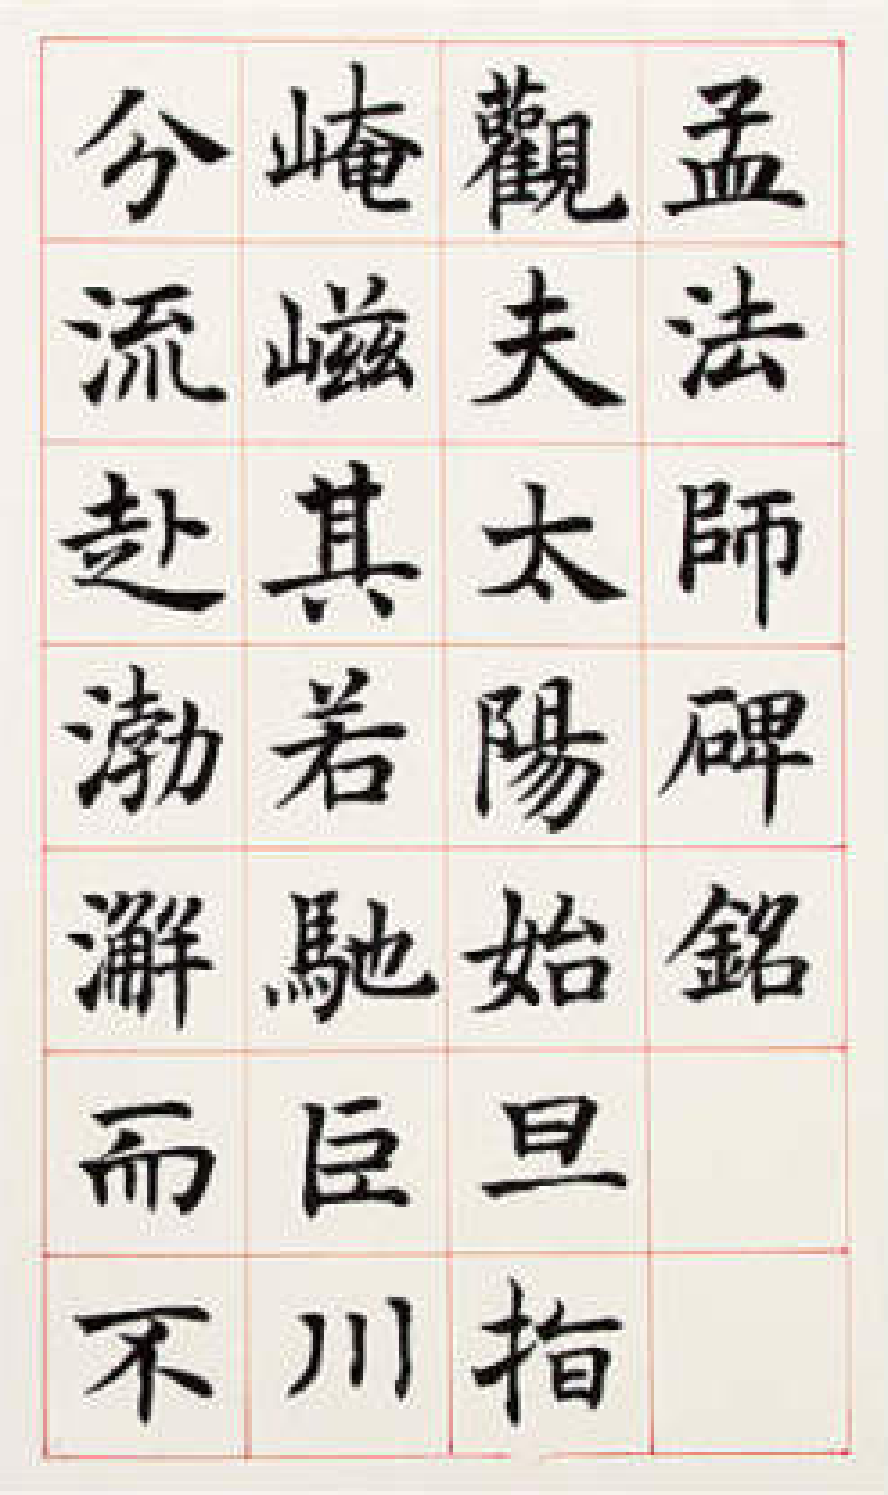 孟法師碑銘
觀夫太陽始旦指
崦嵫其若馳巨川
分流赴渤澥而不